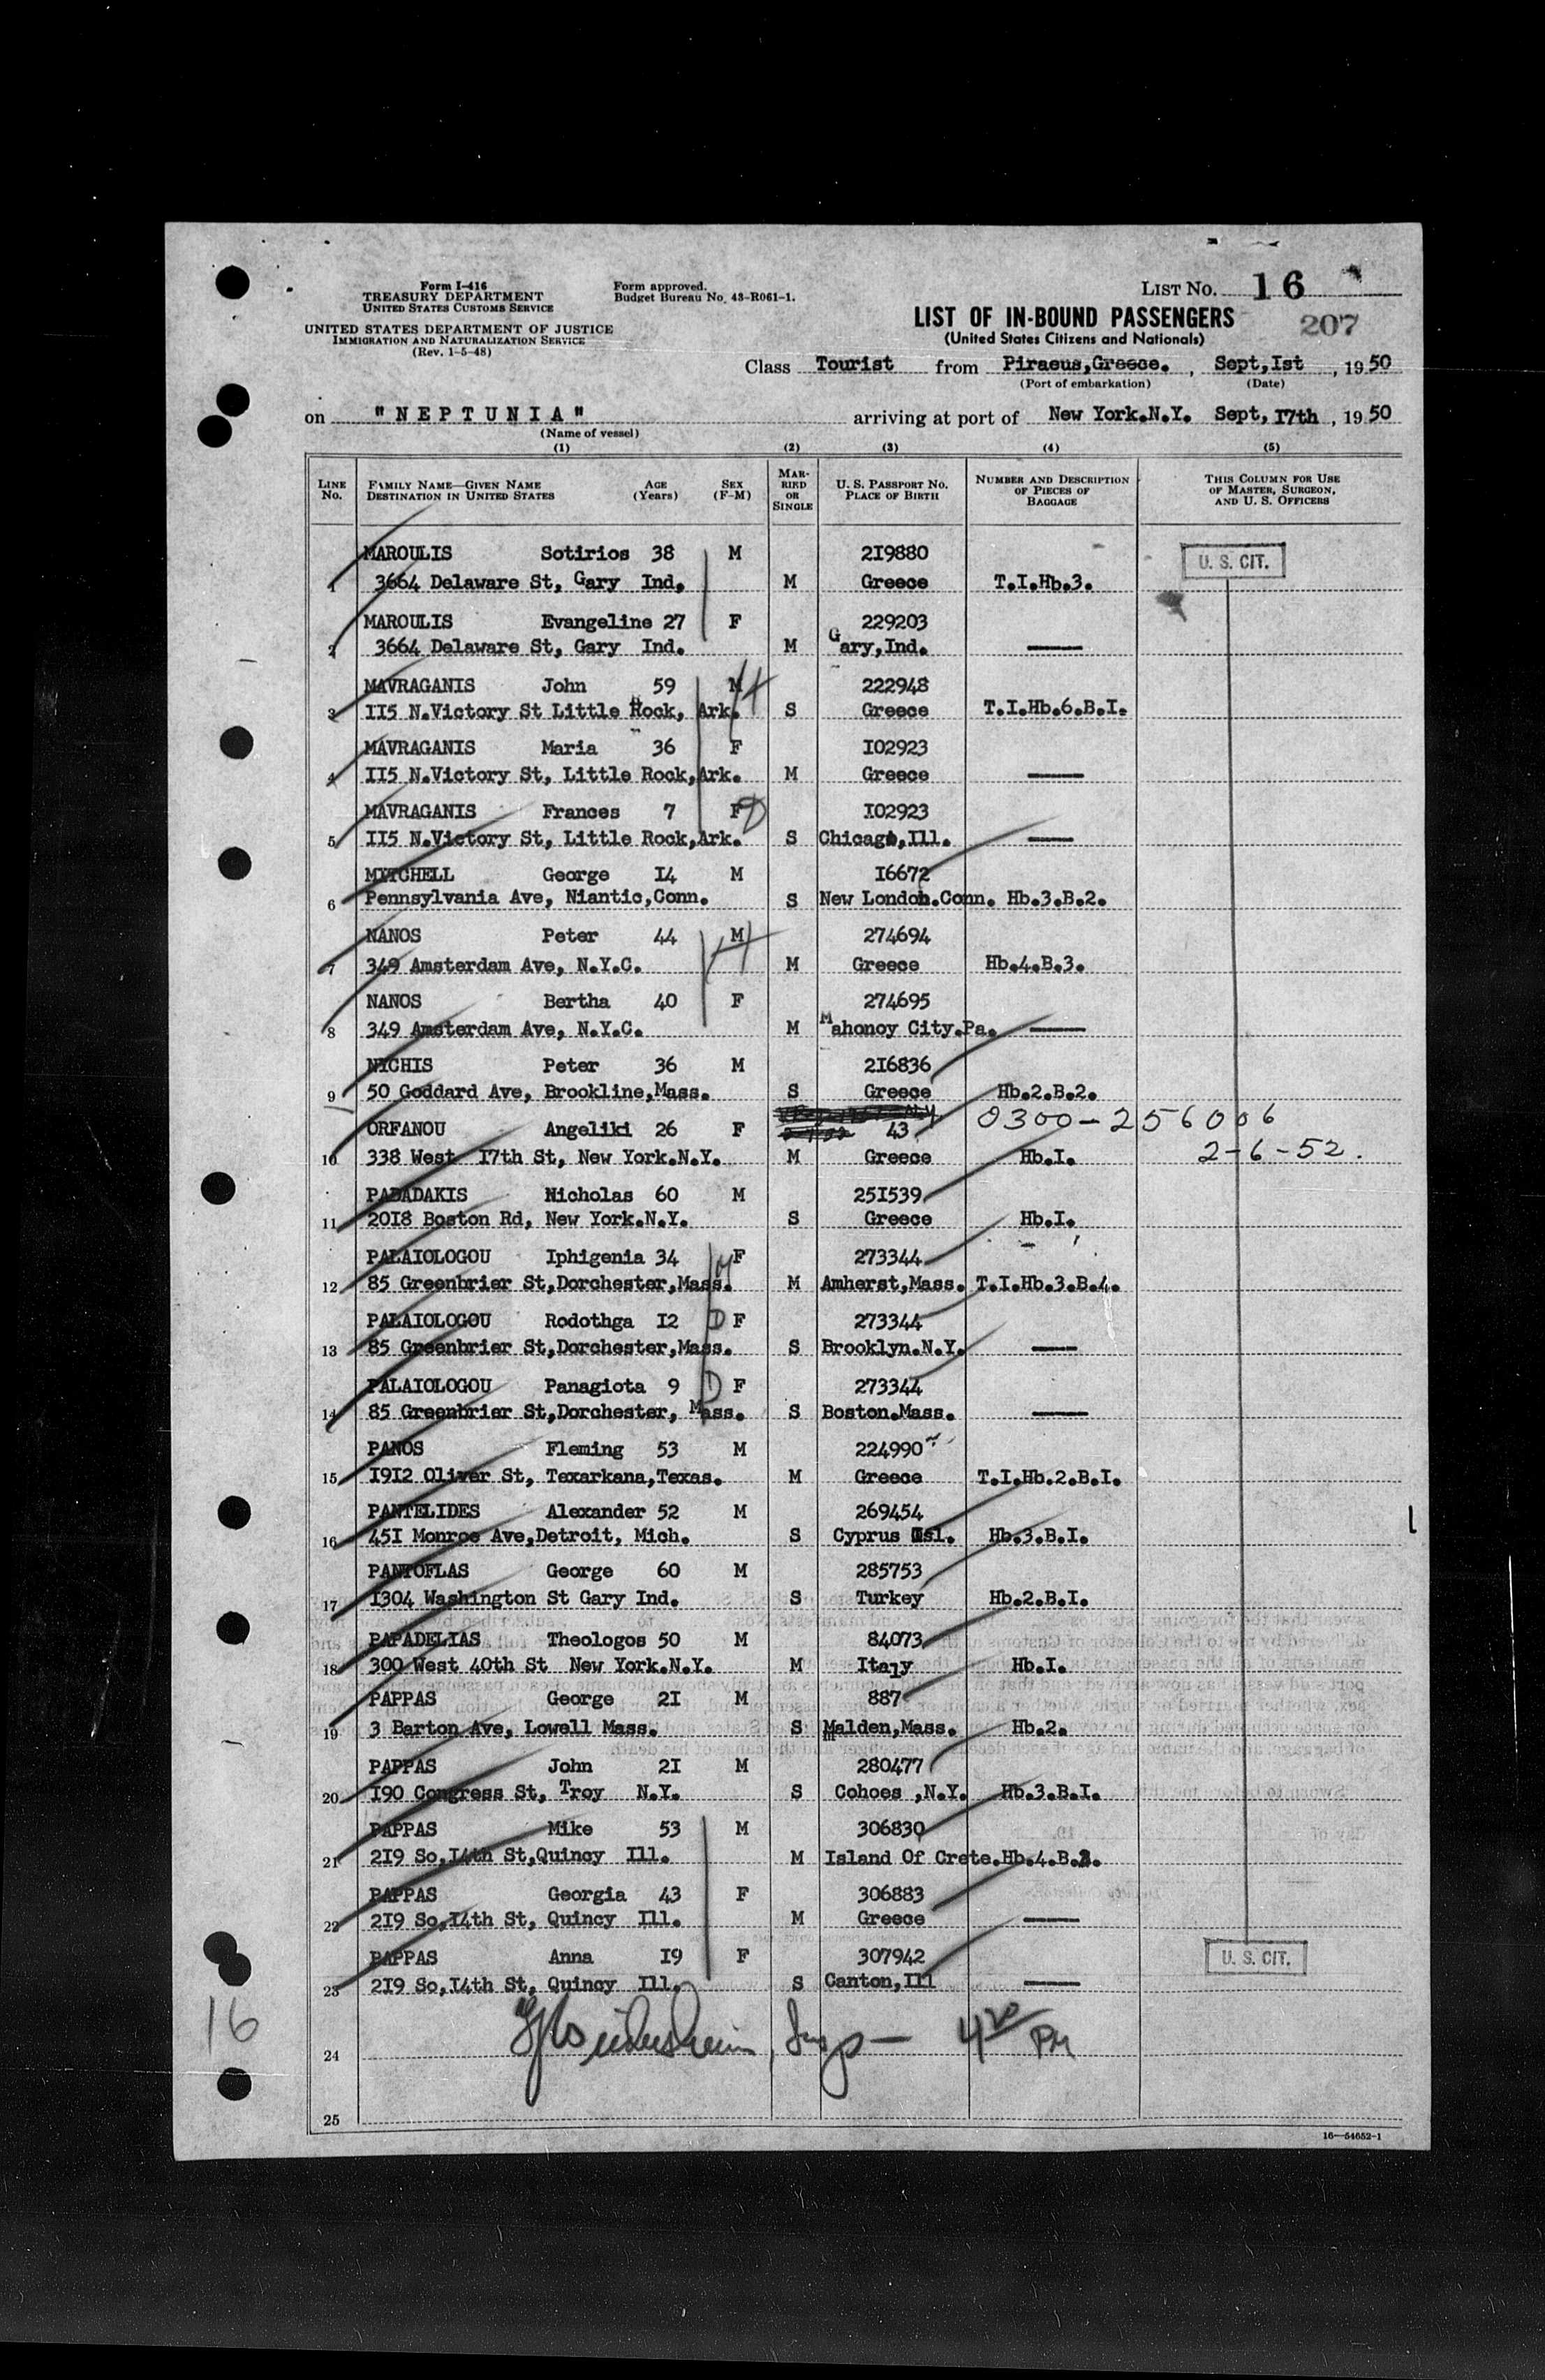 Form I-416
TREASURY DEPARTMENT
UNITED STATES CUSTOMS SERVICE
UNITED STATES DEPARTMENT OF JUSTICE
IMMIGRATION AND NATURALIZATION SERVICE
(Rev. 1-5-48)
Form approved.
Budget Bureau No. 43-R061-1.
LIST No. 16
LIST OF IN-BOUND PASSENGERS
207
(United States Citizens and Nationals)
Class Tourist from Piraeus,Greece. , Sept,Ist , 19 50
(Port of embarkation) (Date)
on "NEPTUNIA" arriving at port of New York.N.Y. Sept, I7th , 19 50
(Name of vessel)
(1) (2) (3) (4) (5)
LINE No. FAMILY NAME—GIVEN NAME DESTINATION IN UNITED STATES AGE (Years) SEX (F-M) MARRIED OR SINGLE U. S. PASSPORT No. PLACE OF BIRTH NUMBER AND DESCRIPTION OF PIECES OF BAGGAGE THIS COLUMN FOR USE OF MASTER, SURGEON, AND U. S. OFFICERS
MAROULIS Sotirios 38 M 2I9880 U. S. CIT.
1 3664 Delaware St, Gary Ind. M Greece T.I.Hb.3.
MAROULIS Evangeline 27 F 229203
2 3664 Delaware St, Gary Ind. M Gary,Ind. —
MAVRAGANIS John 59 M 222948
3 II5 N.Victory St Little Rock, Ark. S Greece T.I.Hb.6.B.I.
MAVRAGANIS Maria 36 F I02923
4 II5 N.Victory St, Little Rock,Ark. M Greece —
MAVRAGANIS Frances 7 F D I02923
5 II5 N.Victory St, Little Rock,Ark. S Chicago,Ill. —
MYTCHELL George I4 M I6672
6 Pennsylvania Ave, Niantic,Conn. S New London.Conn. Hb.3.B.2.
NANOS Peter 44 M 274694
7 349 Amsterdam Ave, N.Y.C. M Greece Hb.4.B.3.
NANOS Bertha 40 F 274695
8 349 Amsterdam Ave, N.Y.C. M Mahonoy City.Pa. —
NYCHIS Peter 36 M 2I6836
9 50 Goddard Ave, Brookline,Mass. S Greece Hb.2.B.2.
ORFANOU Angeliki 26 F 43 0300-256006
10 338 West I7th St, New York.N.Y. M Greece Hb.I. 2-6-52.
PADADAKIS Nicholas 60 M 25I539
11 20I8 Boston Rd, New York.N.Y. S Greece Hb.I.
PALAIOLOGOU Iphigenia 34 F 273344
12 85 Greenbrier St,Dorchester,Mass. M Amherst,Mass. T.I.Hb.3.B.4.
PALAIOLOGOU Rodothga I2 D F 273344
13 85 Greenbrier St,Dorchester,Mass. S Brooklyn.N.Y. —
PALAIOLOGOU Panagiota 9 D F 273344
14 85 Greenbrier St,Dorchester, Mass. S Boston.Mass. —
PANOS Fleming 53 M 224990
15 I9I2 Oliver St, Texarkana,Texas. M Greece T.I.Hb.2.B.I.
PANTELIDES Alexander 52 M 269454
16 45I Monroe Ave,Detroit, Mich. S Cyprus Isl. Hb.3.B.I.
PANTOFLAS George 60 M 285753
17 I304 Washington St Gary Ind. S Turkey Hb.2.B.I.
PAPADELIAS Theologos 50 M 84073
18 300 West 40th St New York.N.Y. M Italy Hb.I.
PAPPAS George 2I M 887
19 3 Barton Ave, Lowell Mass. S Malden,Mass. Hb.2.
PAPPAS John 2I M 280477
20 I90 Congress St, Troy N.Y. S Cohoes ,N.Y. Hb.3.B.I.
PAPPAS Mike 53 M 306830
21 2I9 So,I4th St,Quincy Ill. M Island Of Crete.Hb.4.B.
PAPPAS Georgia 43 F 306883
22 2I9 So,I4th St, Quincy Ill. M Greece —
PAPPAS Anna I9 F 307942 U. S. CIT.
23 2I9 So,I4th St, Quincy Ill. S Canton,Ill —
16
4 20 PM
24
25
16—54652-1